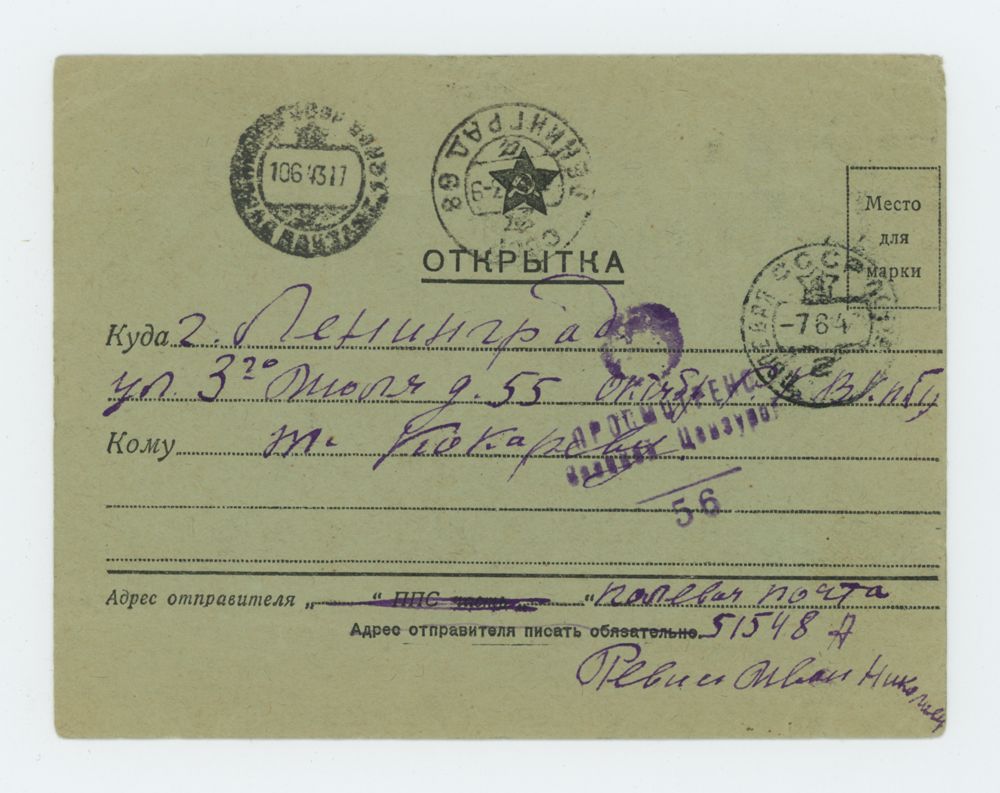 106 43 17
ЛЕНИНГРАД 69
ОТКРЫТКА
Место
для
марки
СССР
-7 6 4
2
Куда г. Ленинград
ул. 3го Июля д. 55
Кому т.
ПРОСМОТРЕНО
Военной Цензурой
56
Адрес отправителя „ “ ППС “ полевая почта
Адрес отправителя писать обязательно. 51548 А
Иван Николаев